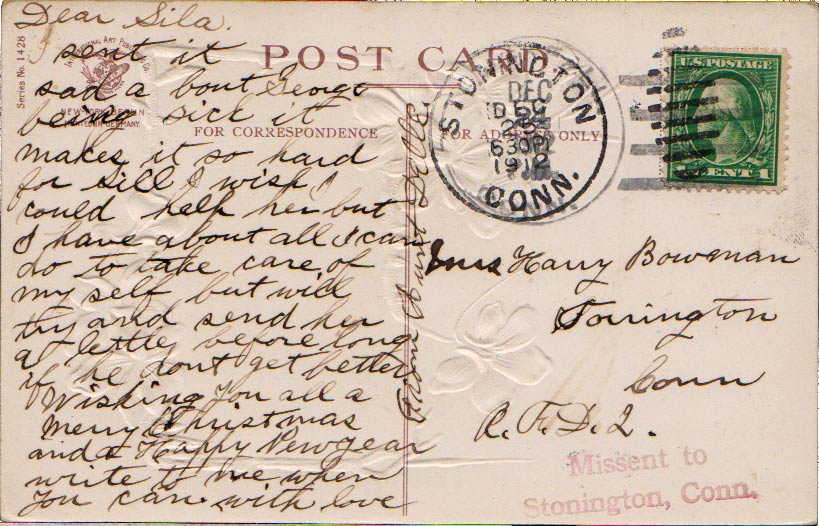 Dear Sila.
I sent it
sad a bout George
being sick it
makes it so hard
for Sill I wish I
could help her but
I have about all I can
do to take care of
my self but will
try and send her
a letter before long
if he dont get better
Wishing You all a
Merry Christmas
and a Happy New year
write to me when
You can. with love
From Aunt
Series No. 1428
INTERNATIONAL ART PUBLISHING CO.
NEW YORK BERLIN
PRINTED IN GERMANY.
POST CARD
FOR CORRESPONDENCE
FOR ADDRESS ONLY
STONINGTON
DEC
630PM
1912
CONN.
U.S. POSTAGE
CENT 1
Mrs Harry Bowman
Torrington
Conn
R. F. D. 2.
Missent to
Stonington, Conn.